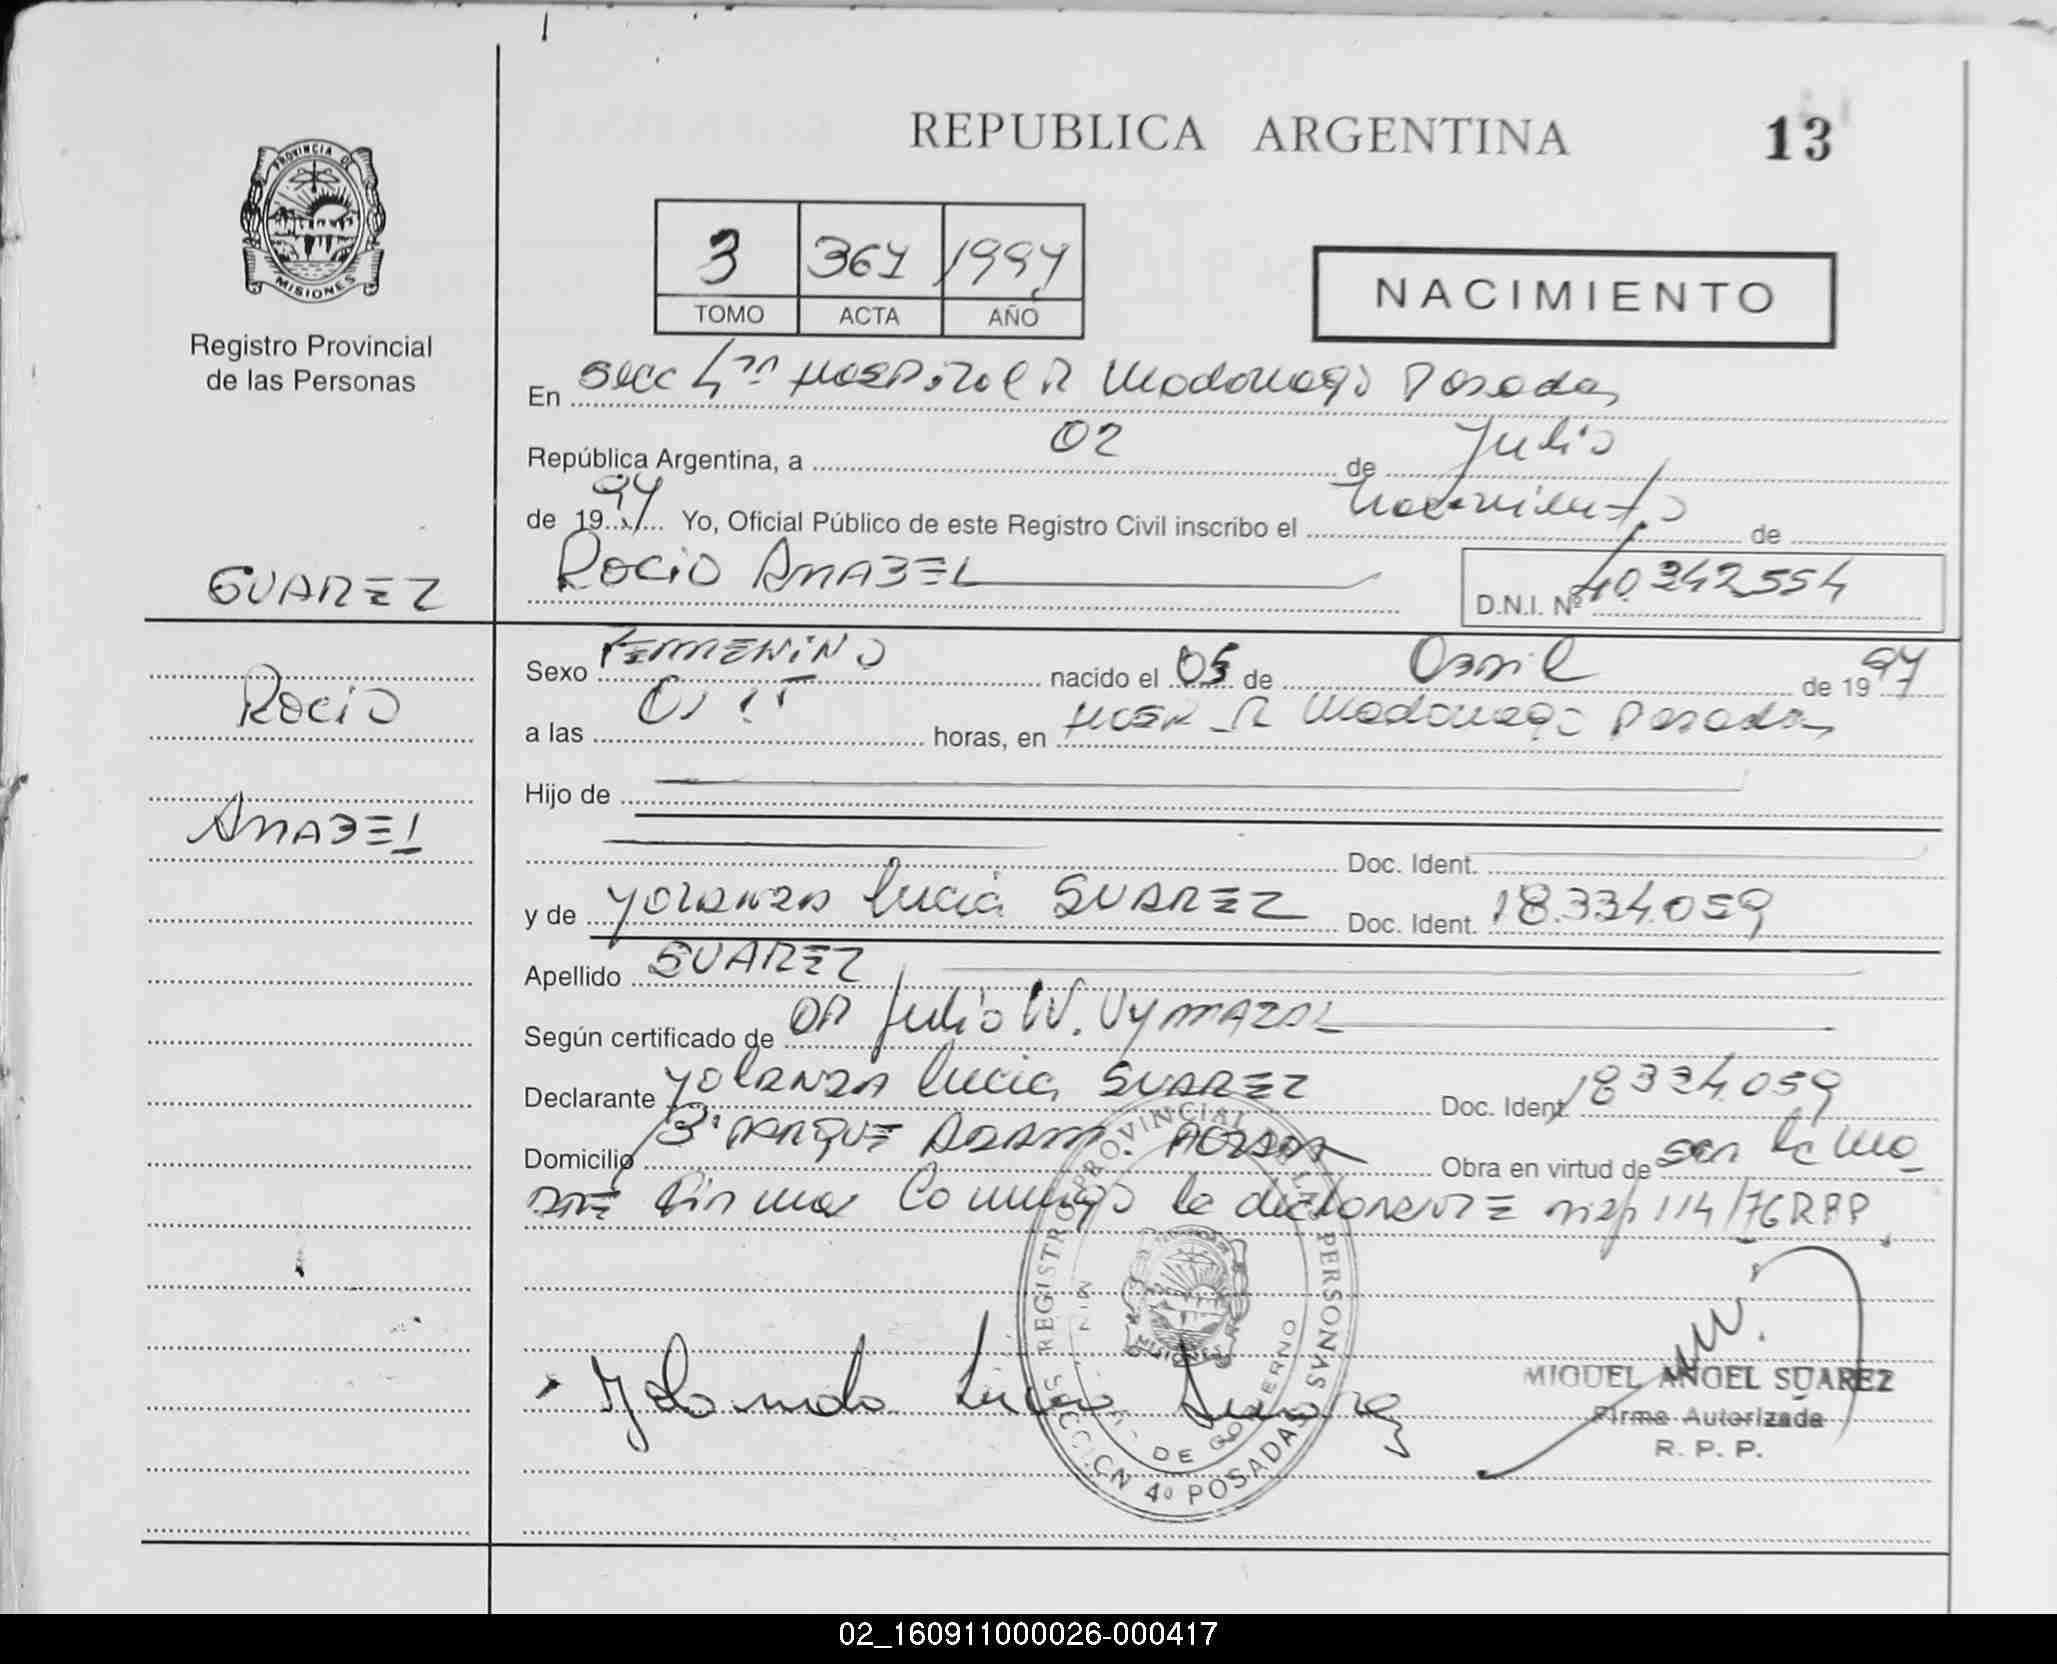 REPUBLICA ARGENTINA
13
PROVINCIA DE
MISIONES
Registro Provincial
de las Personas
3 367 1997
TOMO ACTA AÑO
NACIMIENTO
En Secc 4ta Hospital R Madariaga Posadas
República Argentina, a 02 de Julio
de 1997 Yo, Oficial Público de este Registro Civil inscribo el nacimiento de
SUAREZ
ROCIO ANABEL
D.N.I. Nº 40.342.554
Rocio
ANABEL
Sexo FEMENINO nacido el 05 de Abril de 1997
a las horas, en Hosp R Madariaga Posadas
Hijo de
Doc. Ident.
y de Yolanda Lucia SUAREZ Doc. Ident. 18.334.059
Apellido SUAREZ
Según certificado de DR Julio W. VYMAZAL
Declarante Yolanda Lucia SUAREZ Doc. Ident. 18334.059
Domicilio 3º PARQUE ADAM. Obra en virtud de ser la ma
dre firma conmigo la declarante 114/76 RPP
REGISTRO PROVINCIAL DE LAS PERSONAS
MISIONES
DE GOBIERNO
SECCION 4º POSADAS
Yolanda Lucia Suarez
MIGUEL ANGEL SUAREZ
Firma Autorizada
R. P. P.
02_160911000026-000417